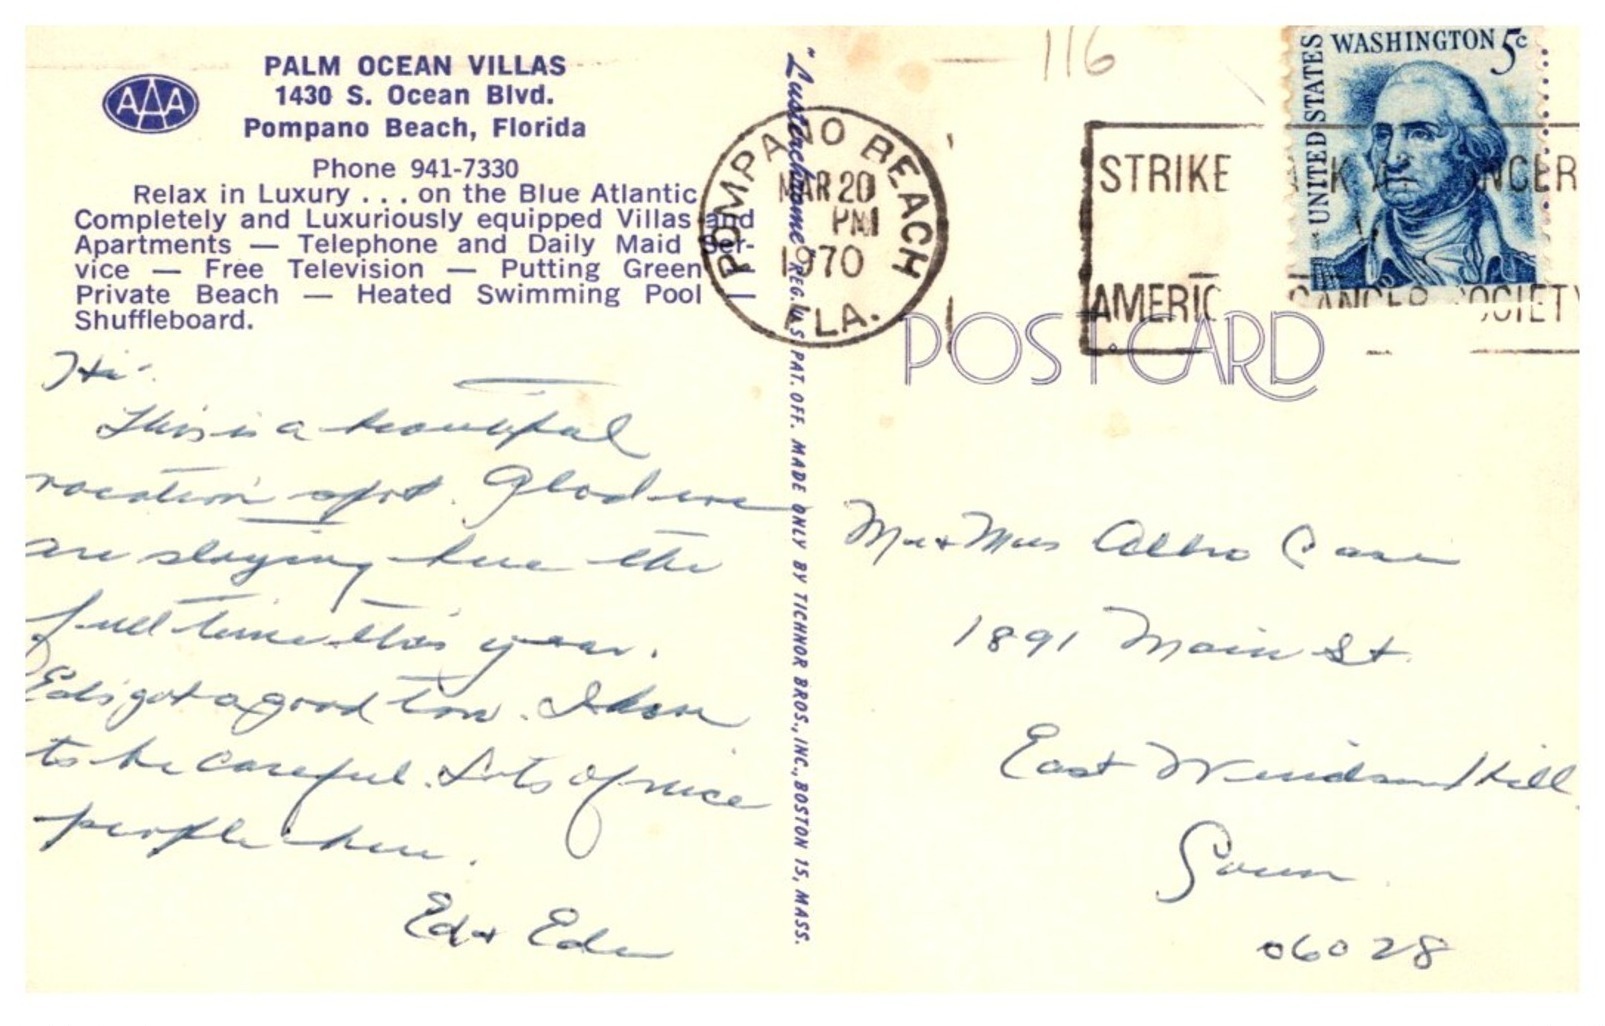 PALM OCEAN VILLAS
1430 S. Ocean Blvd.
Pompano Beach, Florida
AAA
Phone 941-7330
Relax in Luxury . . . on the Blue Atlantic
Completely and Luxuriously equipped Villas and
Apartments — Telephone and Daily Maid Ser-
vice — Free Television — Putting Green
Private Beach — Heated Swimming Pool —
Shuffleboard.
Hi.
This is a beautiful
vacation spot. Glad we
are staying here the
full time this year.
Ed's got a good tan. I have
to be careful. Lots of nice
people here.
Ed &
"Lusterchrome" REG. U.S. PAT. OFF. MADE ONLY BY TICHNOR BROS., INC., BOSTON 15, MASS.
116
POMPANO BEACH
MAR 20
PM
1970
FLA.
STRIKE BACK AT CANCER
AMERICAN CANCER SOCIETY
UNITED STATES
WASHINGTON 5c
POST CARD
Mr & Mrs Case
1891 Main St.
East Windsor Hill
Conn
06028